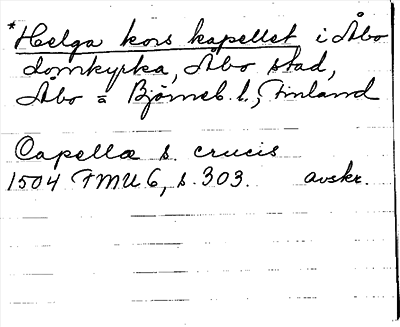 *Helga kors kapellet i Åbo
domkyrka, Åbo stad,
Åbo = Björneb. l., Finland
Capella s. crucis
1504 FMU 6, s. 303. avskr.